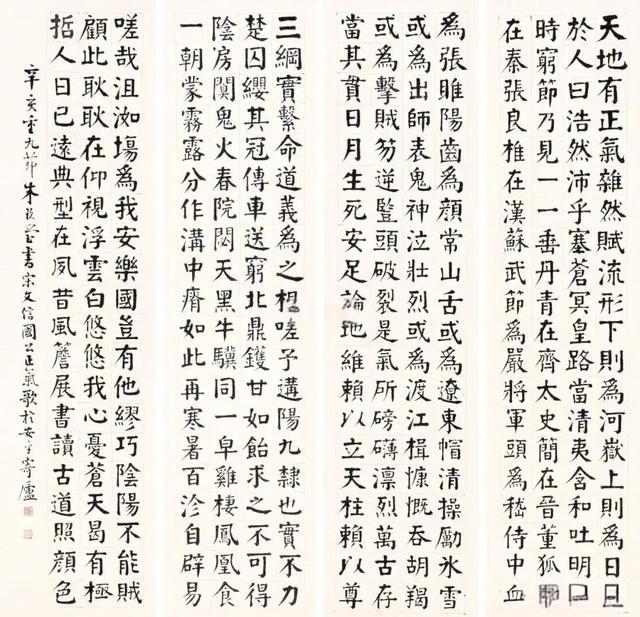 天地有正氣雜然賦流形下則爲河嶽上則爲日
於人曰浩然沛乎塞蒼冥皇路當清夷含和吐明
時窮節乃見一一垂丹青在齊太史簡在晉董狐
在秦張良椎在漢蘇武節爲嚴將軍頭爲嵇侍中血
爲張睢陽齒爲顏常山舌或爲遼東帽清操勵氷雪
或爲出師表鬼神泣壯烈或爲渡江楫慷慨吞胡羯
或爲擊賊笏逆豎頭破裂是氣所磅礴凛烈萬古存
當其貫日月生死安足論地維賴以立天柱賴以尊
三綱實繫命道義爲之根嗟予遘陽九隸也實不力
楚囚纓其冠傳車送窮北鼎鑊甘如飴求之不可得
陰房闃鬼火春院閟天黑牛驥同一皁雞棲鳳凰食
一朝蒙霧露分作溝中瘠如此再寒暑百沴自辟易
嗟哉沮洳塲爲我安樂國豈有他繆巧陰陽不能賊
顧此耿耿在仰視浮雲白悠悠我心憂蒼天曷有極
哲人日已遠典型在夙昔風簷展書讀古道照顏色
辛亥重九節朱玖瑩書宋文信國公正氣歌於安平寄廬